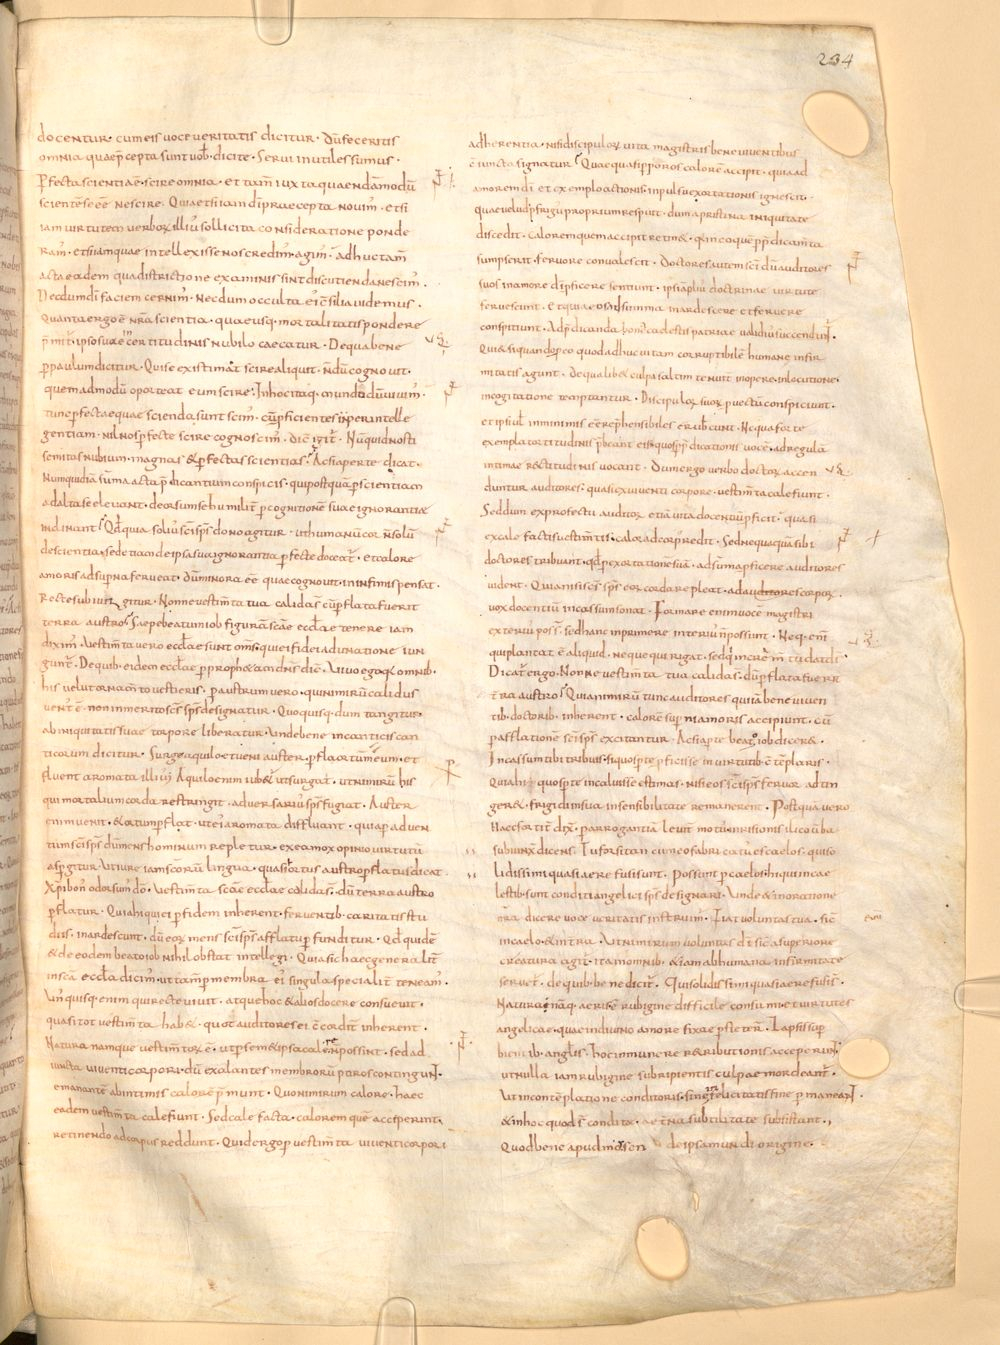 234
docentur· cum eis voce veritatis dicitur· Dū feceritis
omnia quae p̄cepta sunt vob· dicite· Servi inutiles sumus·
P̄fecta scientia ē· scire omnia· et tam̄ iuxta quaendā modū
scientē se eē nescire· Quia etsi iam dī praecepta novim̄· etsi
iam virtutem verborꝝ illiꝰ sollicita consideratione ponde
ram̄· etsi iam quae intellexisse nos credim̄ agim̄· adhuc tam̄
acta eadem qua districtione examinis sint discutienda nescim̄·
Necdum dī faciem cernim̄· Necdum occulta eiꝰ c̄silia videmus·
Quanta ergo ē nr̄a scientia· quae usq; mortalitatis pondere
p̄mitt̄· ipso suae certitudinis nubilo caecatur· De qua bene
p̄ paulum dicitur· Quis se existimat scire aliquit· n̄dū cognovit·
quemadmodū oporteat eum scire· In hoc itaq; mundo dū vivim̄·
tunc p̄fecta quae scienda sunt scim̄· cū p̄ficientes in p̄ intelle
gentiam· nil nos p̄fecte scire cognoscim̄· Dic̄ igit̄· Nūquid nosti
semitas nubium· magnas & p̄fectas scientias· Ac si aperte dicat·
Numquid iā sūma acta p̄dicantium conspicis· qui postquā p̄ scientiam
ad alta se elevant· deorsum se humilit̄ p̄ cognitionē suae ignorantiae
inclinant· Qd̄ quia solius sc̄i sp̄s dono agitur· ut humanū cor n̄ solū
de scientia· sed etiam de ipsa sua ignorantia p̄fecte doceat̄· et calore
amoris ad sup̄na ferveat· dū minora eē quae cognovit in infimis pensat·
Recte subiungitur· Nonne vestim̄ta tua calida s̄ cū p̄flata fuerit
terra austro· Saepe beatum iob figurā sc̄ae eccl̄ae tenere iam
dixim̄· Vestim̄ta vero eccl̄ae sunt om̄s· qui ei fidei adunatione iun
gunt̄· De quib· eidem eccl̄ae p̄ prophetā a dn̄o dic̄· Vivo ego q; omnib·
his velut ornam̄to vestieris· p̄ austrum vero· qui nimirū calidus
vent̄ ē· non inmerito sc̄s sp̄s designatur· Quo quisq; dum tangitur·
ab iniquitatis suae torpore liberatur· Unde bene in canticis can
ticorum dicitur· Surge aquilo et veni auster· p̄fla ortū meum· et
fluent aromata illiꝰ· Aquilo enim iubet̄ ut surgat· ut nimirū his
qui mortalium corda restringit· adversariꝰ sp̄s fugiat· Auster
enim venit· & ortum p̄flat· ut eiꝰ aromata diffluant· quia p̄ adven
tum sc̄i sp̄s dū mens hominum repletur· ex ea mox opinio virtutū
aspergitur· ut iure iam sc̄orū lingua· quasi ortus austro p̄flatus dicat·
Xp̄i bonꝰ odor sum̄ dō· Vestim̄ta sc̄ae ecclae calida s̄· dū terra austro
p̄flatur· Quia hi qui ei p̄ fidem inherent· ferventib· caritatis stu
diis· inardescunt· dū eorꝝ mens sc̄i sp̄s afflatu p̄funditur· Qd̄ quidē
& de eodem beato iob nihil obstat intellegi· Quia sic haec generalit̄
in sc̄a eccl̄a dicim̄· ut tam̄ p̄ membra eiꝰ singula specialit̄ teneam̄·
Unꝰquisq; enim qui recte vivit· atque hoc & alios docere consuevit·
quasi tot vestim̄ta habet· quot auditores ei c̄cordit̄ inherent·
Natura namque vestim̄torꝝ ē· ut p̄ semet ipsa calere n̄ possint· sed ad
iuncta viventi corpori· dū exalantes membrorū poros contingunt·
emanantē ab intimis calorē p̄munt· Quo nimirum calore· haec
eadem vestim̄ta calefiunt· Sed calefacta· calorem quē acceperint·
retinendo ad corpus reddunt· Quid ergo p̄ vestim̄ta viventi corpori
adherentia· nisi discipulorꝝ vita magistris bene viventibus
c̄iuncta signatur· Quae quasi p̄ poros calorē accipit· quia ad
amorem dī et exemplo actionis· inpulsu exortationis ignescit·
quae velud p̄ frigꝰ proprium respuit· dum a pristina iniquitate
discedit· Calorem quem accipit retinet· q̄n in eo quē p̄ p̄dicam̄ta
sumpserit· fervore convalescit· Doctores autem sc̄i dū auditores
suos in amore dī p̄ficere sentiunt· ipsi ampliꝰ doctrinae virtute
fervescunt· Et quia eos in sūma inardescere et fervere
conspiciunt· Ad p̄dicanda bona caelestis patriae validiꝰ succendunt̄·
Qui & si quando p̄ eo quod adhuc vitam corruptibilē humanae infir
mitatis agunt· De qualibet culpa saltim tenuit̄ in opere· in locutione·
in cogitatione temptantur· Discipulorꝝ suorꝝ p̄vectū conspiciunt·
et ipsi vł in minimis eē rep̄hensibiles erubescunt· Ne qua forte
exempla tortitudinis p̄beant eis· quos p̄ p̄dicationis vocē· ad regulā
intimae rectitudinis vocant· Dum ergo verbo doctorꝝ accen
duntur auditores· quasi ex viventi corpore· vestim̄ta calefiunt·
Sed dum ex profectu auditorꝝ etiā vita docentiū p̄ficit· quasi
ex calefactis vestim̄tis· calor ad corpꝰ redit· Sed nequaquā sibi
doctores tribuant· qd̄ p̄ exortationē suā· ad sūma p̄ficere auditores
vident· Quia nisi sc̄s sp̄s eorꝝ corda repleat· ad aures corporꝝ
vox docentiū incassum sonat· Formare enim vocē magistri
exteriꝰ poss̄· sed hanc inprimere interiꝰ n̄ possunt· Neq; enī
qui plantat ē aliquid· neque qui rigat· sed q; increm̄tū dat dī·
Dicat̄ ergo· Nonne vestim̄ta tua calida s̄ dū p̄flata fuerit
t̄ra austro· Quia nimirū tunc auditores qui iā bene viven
tib· doctorib· inherent· calorē sup̄ni amoris accipiunt· cū
p̄ afflationē sc̄i sp̄s excitantur· Ac si ap̄te beato iob diceret·
Incassum tibi tribuis· si quos p̄ te p̄ficisse in virtutib· c̄templaris·
Quia hi quos p̄ te incaluisse estimas· nisi eos sc̄i sp̄s fervor adtin
geret· frigidi in sua insensibilitate remanerent· Postquā vero
haec fortit̄ dix̄· p̄ arrogantiā levit̄ motū inrisionis ilico uba
subiunx̄ dicens· Tu forsitan cum eo fabricatꝰ es caelos· qui so
lidissimi quasi aere fusi sunt· Possunt p̄ caelos· hi qui in cae
lestib· sunt conditi angelici sp̄s designari· Unde & in oratione
nr̄a dicere voce veritatis instruim̄· Fiat voluntas tua· sic̄
in caelo & in t̄ra· Ut nimirum voluntas dī sic̄ a superiore
creatura agit̄· ita in omnib· & iam ab humana infirmitate
servet̄· de quib· bene dicit̄· Qui solidissimi quasi aere fusi s̄·
Natura nāq; aeris ē· rubigine difficile consumi· et virtutes
angelicae· quae in divino amore fixae p̄stiter̄· Lapsis sup
bientib· anglis· hoc in munere retributionis acceperunt·
ut nulla iam rubigine subripientis culpae mordeant̄·
Ut in contēplatione conditoris· sine felicitatis fine p̄maneant·
& in hoc quod s̄t conditae· aet̄na subtilitate subsistant·,
Quod bene apud moysen de ipsa mundi origine·